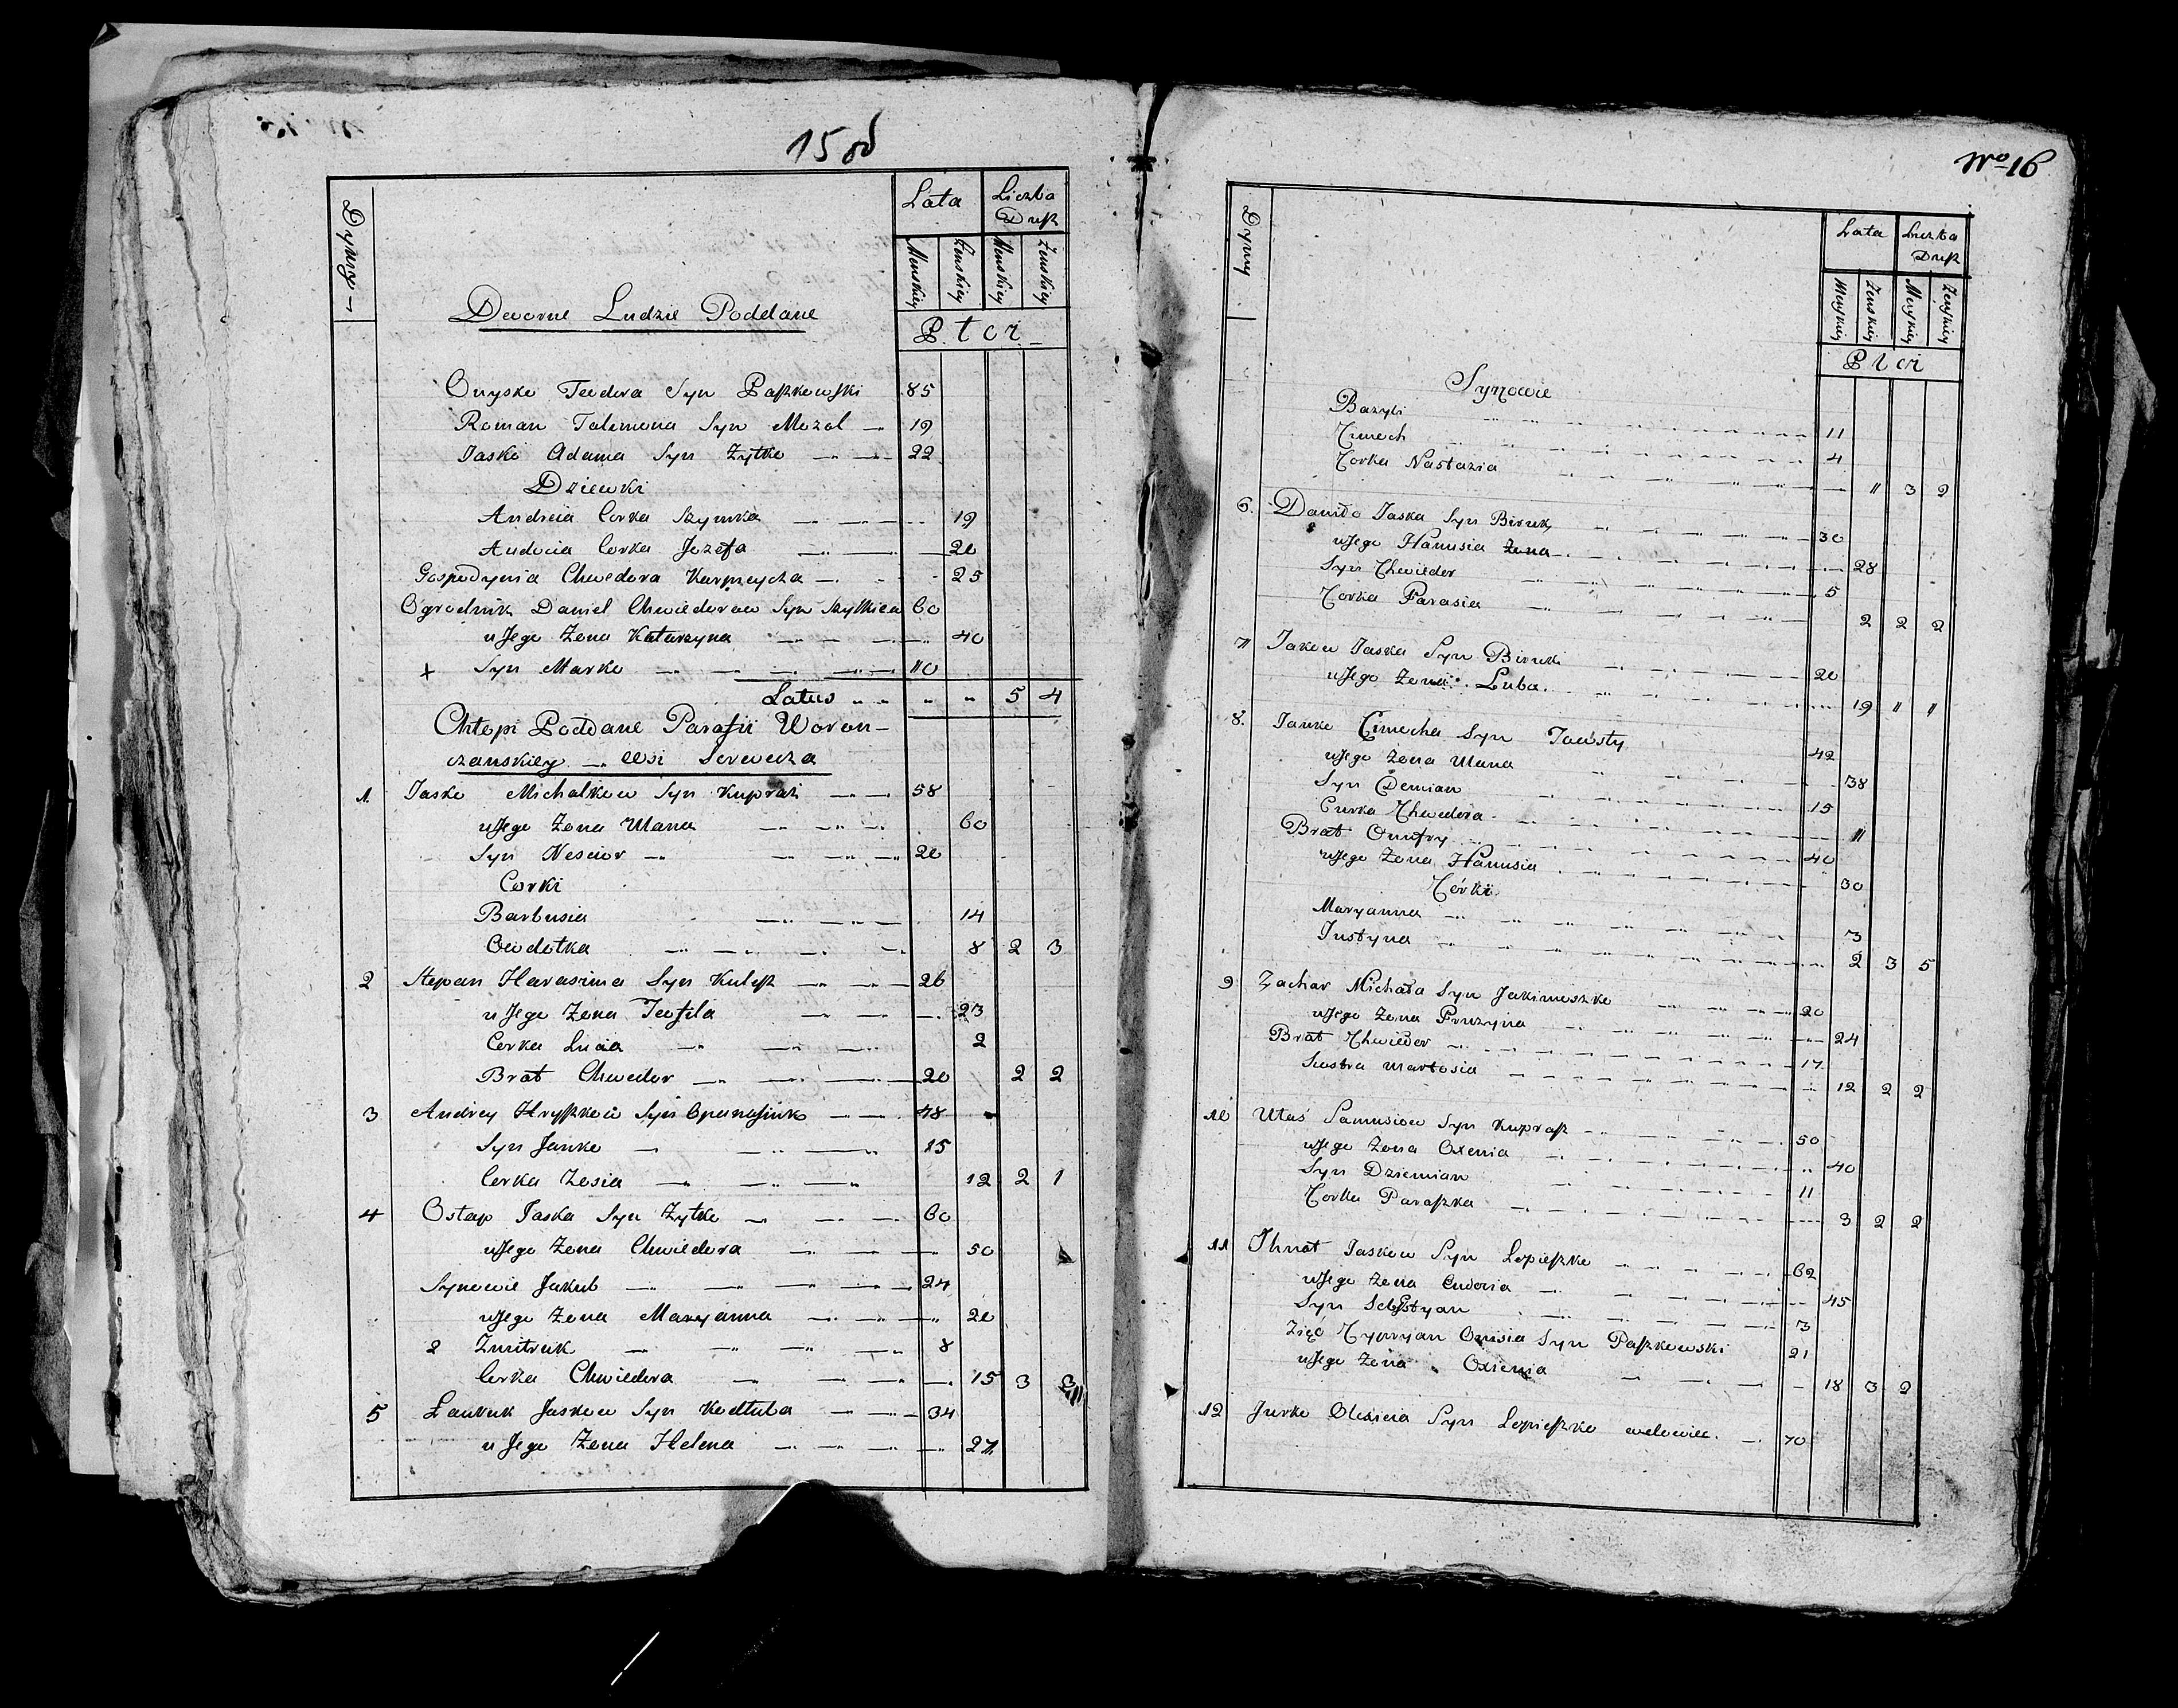 15 od
Dymy
Lata Liczba Dusz
Menskiey Żenskiey Menskiey Żenskiey
Dworne Ludzie Poddane
Płci
Onysko Teodora Syn Paszkowski 85
Roman Talimona Syn Mozol 19
Jasko Adama Syn Żytko 22
Dziewki
Andreia Corka 19
Audocia Corka Jozefa 20
Gospodynia Chwedora Karpieycha 25
Ogrodnik Daniel Chwiedorow Syn 60
u Jego Żona Katarzyna 40
+ Syn Marko 10
Latus " " 5 4
Chłopi Poddane Parafii Woron-
czanskiey wsi Serwecza
1. Jasko Michałkow Syn Kuprasz 58
u Jego Żona Ulana 60
Syn Nescior 20
Corki
Barbusia 14
Owdotka 8 2 3
2 Stepan Harasima Syn Kulesz 26
u Jego Żona Teofila 23
Corka Lucia 2
Brat Chwedor 20 2 2
3 Andrey Hryszkow Syn 48
Syn Janko 15
Corka Zosia 12 2 1
4 Ostap Jaska Syn Żytko 60
u Jego Żona Chwiedora 50
Synowie Jakub 24
u Jego Żona Maryanna 20
2 Zmitruk 8
Corka Chwiedora 15 3 3
5 Ławruk Jaskow Syn Kodłuba 34
u Jego Żona Helena 27
No 16
Dymy
Lata Liczba Dusz
Menskiey Żenskiey Menskiey Żenskiey
Płci
Synowie
Bazyli 11
Cimoch 4
Corka Nastazia " 3 2
6. Daniło Jaska Syn Biruky 30
u Jego Hanusia Żona 28
Syn Chwiedor 5
Corka Parasia 2 2 2
7 Jakow Jaska Syn Biruki 20
u Jego Żona Luba 19 " "
8. Janko Cimocha Syn Towsty 42
u Jego Żona Ulana 38
Syn Demian 15
Curka Chwedora 11
Brat Onufry 40
u Jego Żona Hanusia 30
Córki
Maryanna 3
Justyna 2 3 5
9 Zachar Michała Syn Jakimoszko 20
u Jego Żona Pruzyna 24
Brat Chwiedor 17
Siostra Martosia 12 2 2
10 Ułas Samusiow Syn Kuprasz 50
u Jego Żona Oxenia 40
Syn Dziemian 11
Corka Paraszka 3 2 2
11 Ihnat Jaskow Syn Lepieszko 62
u Jego Żona Eudocia 45
Syn Sebestyan 3
Zięć Cypryan Onisia Syn Paszkowski 21
u Jego Żona Oxienia 18 3 2
12 Jurko Olexieia Syn Lepieszko wdowiec 70